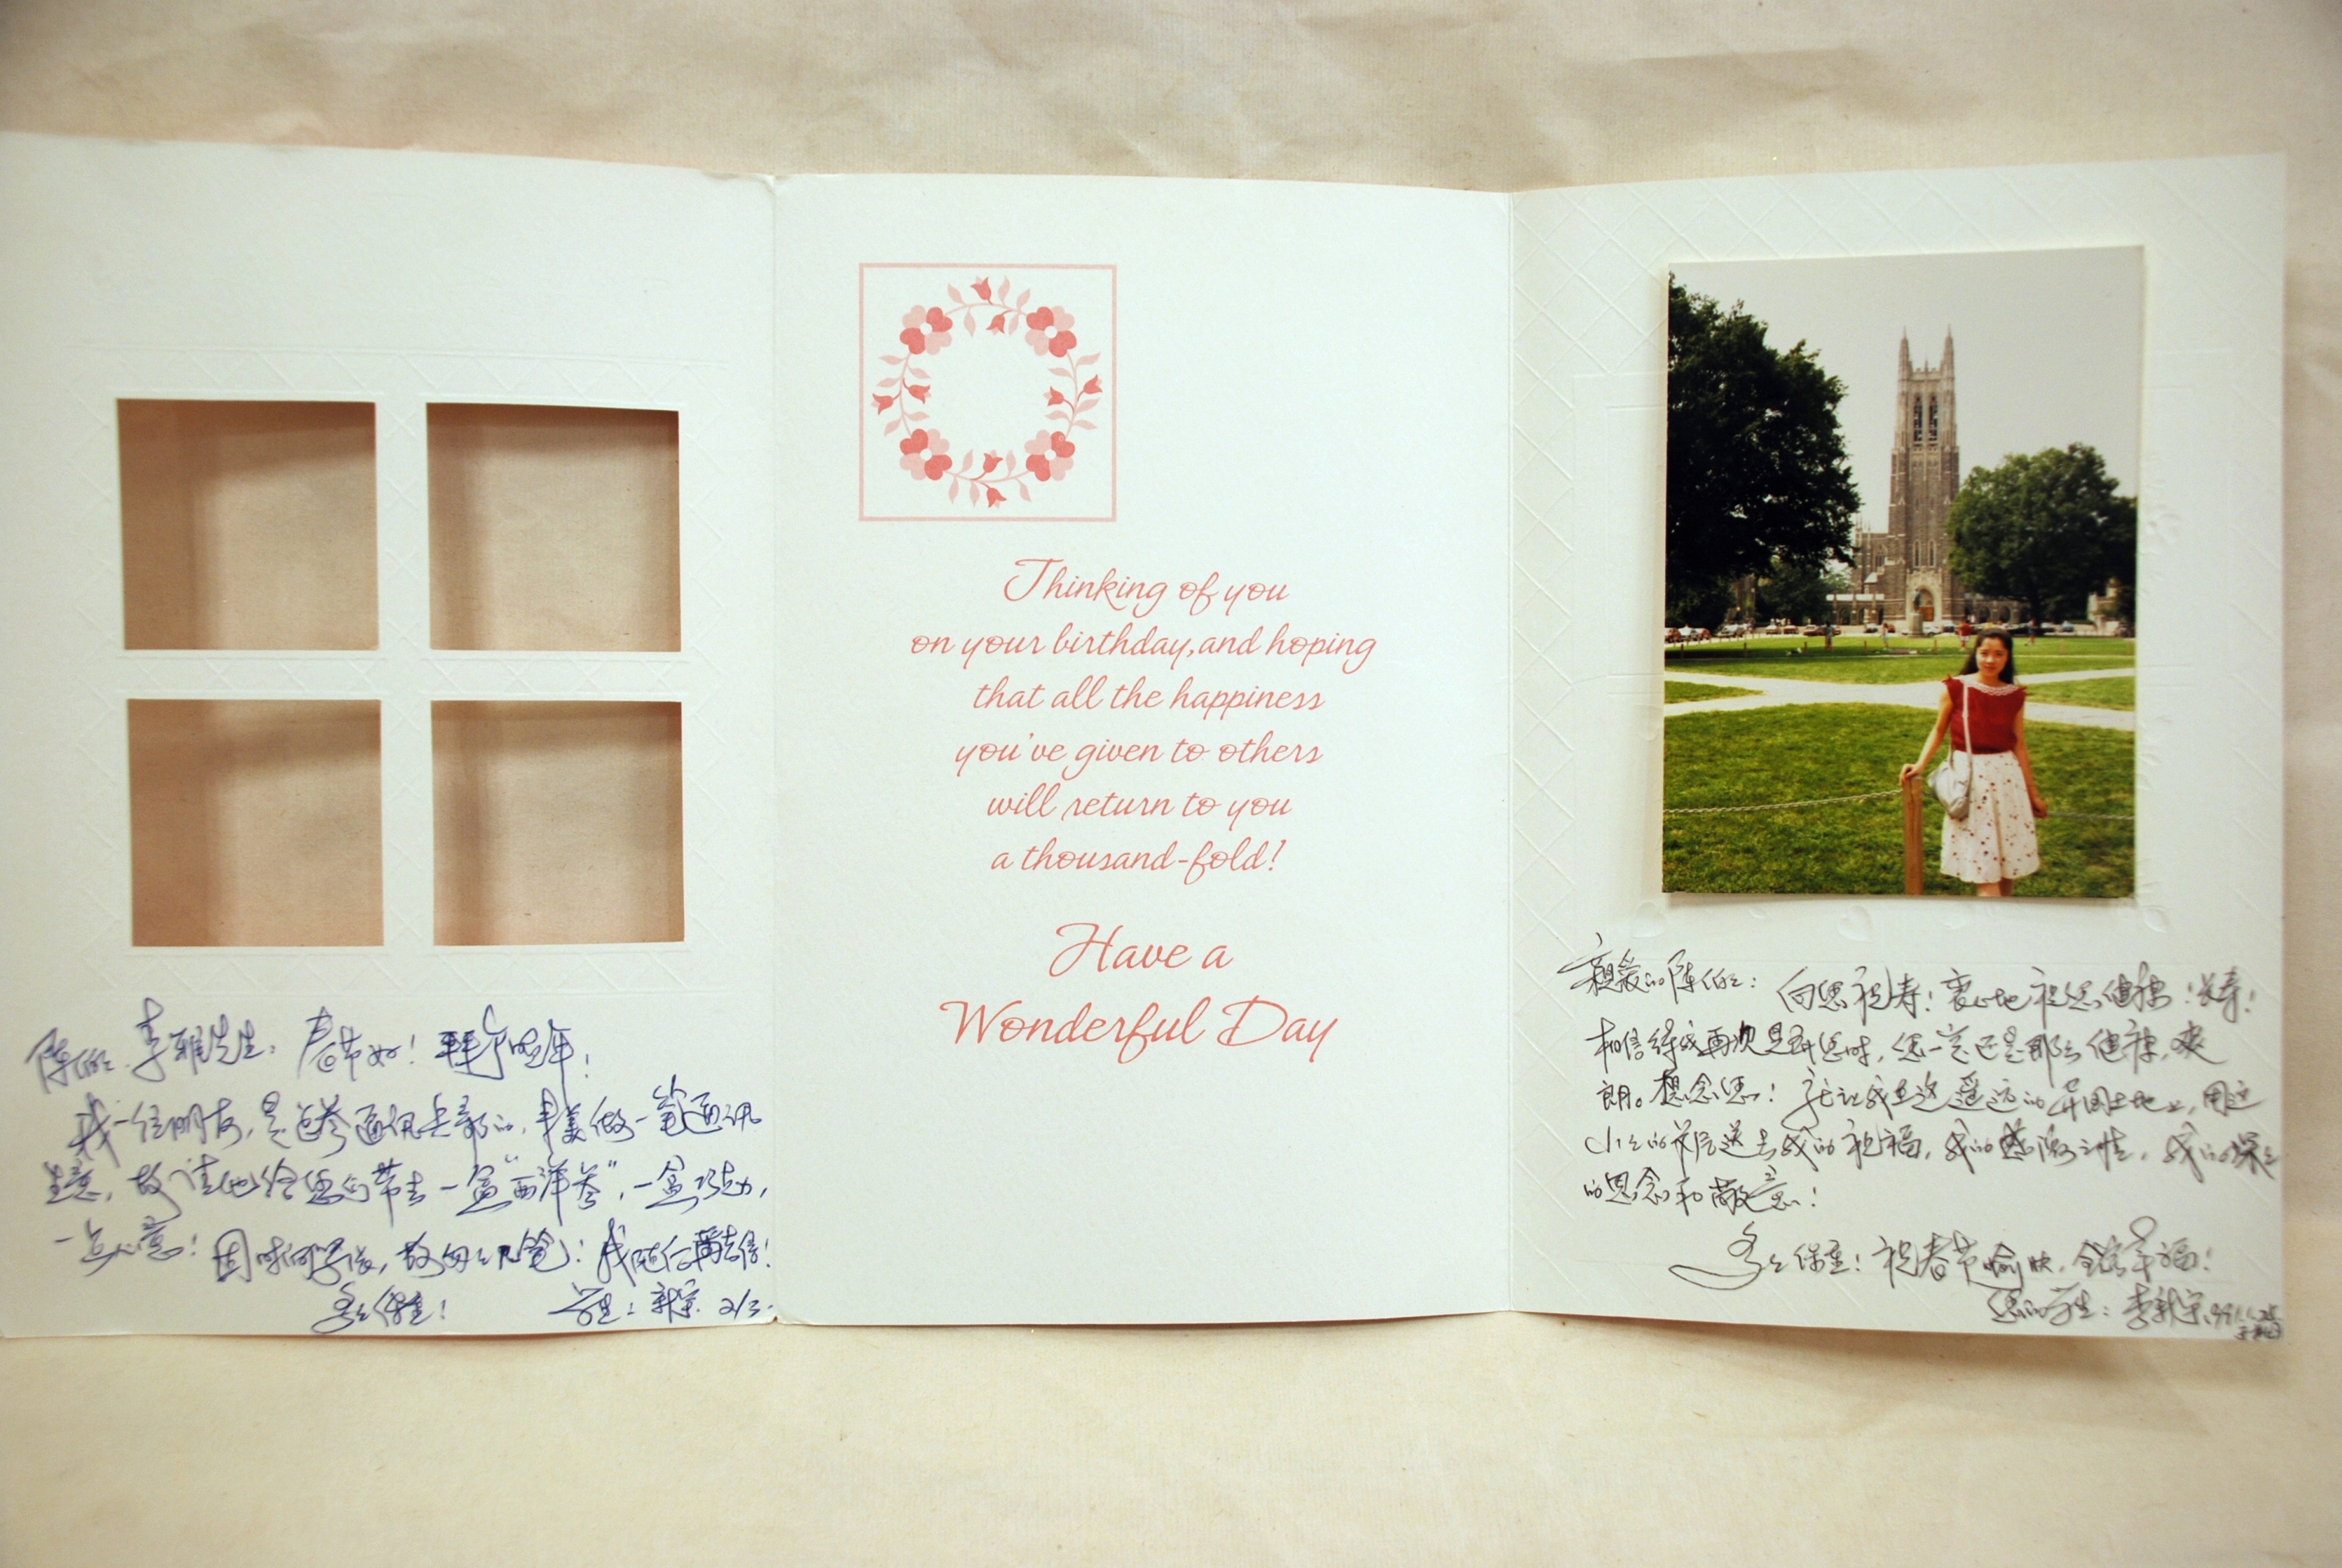 陈伯伯、李雅先生：春节好！拜个晚年！
我一位朋友，是 通讯 的，来美做一笔通讯
生意，故请他给您们带去一盒“西洋参”，一盒巧克力，
一点心意！因时间 ，故匆匆 ！我随后 去信！
多多保重！ 学生：新 2/3.
Thinking of you
on your birthday, and hoping
that all the happiness
you've given to others
will return to you
a thousand-fold!
Have a
Wonderful Day
亲爱的陈伯伯： 向您祝寿！衷心地祝您健康！长寿！
相信待我再次见到您时，您一定还是那么健康，爽
朗。想念您！就让我在这遥远的异国土地上，用这
小小的 片送去我的祝福，我的感激之情，我的深深
的思念和敬意！
多多保重！祝春节愉快，全家幸福！
您的学生：李新 1991.1.25